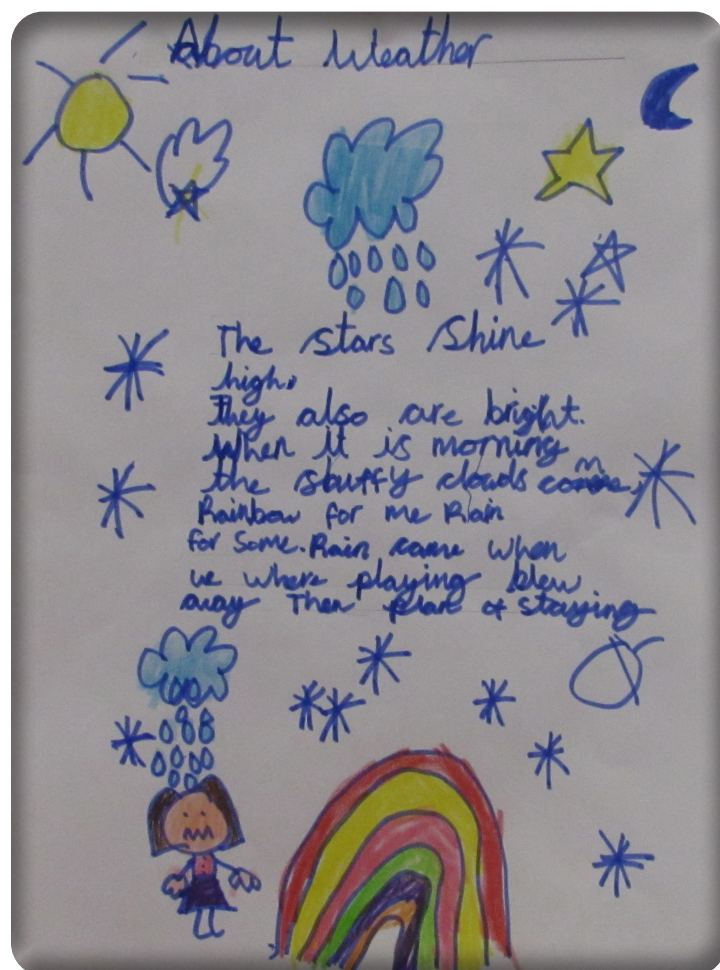 About Weather
The stars shine
high.
They also are bright.
When it is morning
the stuffy clouds come,
Rainbow for me Rain
for some. Rain came when
we where playing blew
away Then plans of staying